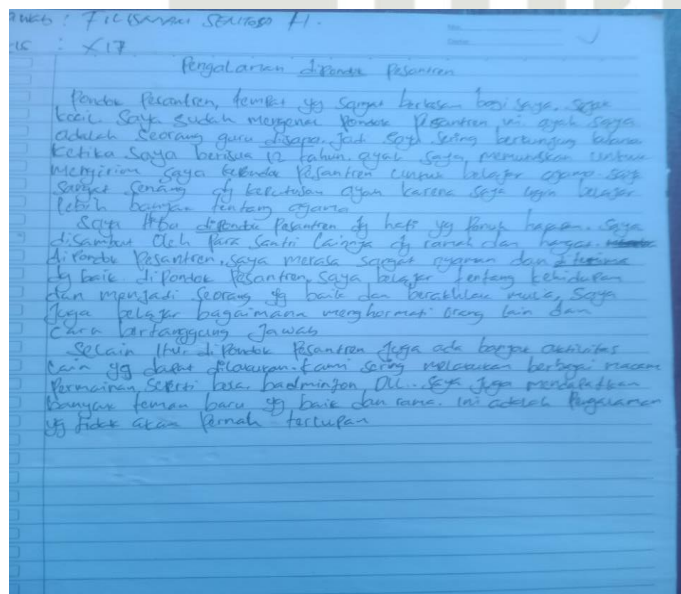 : FILISAMAN SENTOSO H.
: XI7
Pengalaman dipondok Pesantren
Pondok Pesantren, tempat yg sangat berkesan bagi saya, sejak
kecil saya sudah mengenal Pondok Pesantren ini ayah saya
adalah seorang guru disana. jadi saya sering berkunjung
ketika saya berusia 12 tahun. ayah saya, memutuskan untuk
mengirim saya kepondok Pesantren untuk belajar agama. saya
sangat senang dg keputusan ayah karena saya ingin belajar
lebih banyak tentang agama
Saya tiba dipondok Pesantren dg hati yg Penuh harapan. saya
disambut oleh Para Santri lainnya dg ramah dan hangat.
diPondok Pesantren, saya merasa sangat nyaman dan diterima
dg baik. diPondok Pesantren, saya belajar tentang kehidupan
dan menjadi seorang yg baik dan berakhlak mulia, saya
Juga belajar bagaimana menghormati orang lain dan
Cara bertanggung Jawab
Selain Itu, diPondok Pesantren Juga ada banyak aktivitas
lain yg dapat dilakukan. kami sering melakukan berbagai macam
Permainan Seperti bola, badminton DLL. saya Juga mendapatkan
banyak teman baru yg baik dan ramah. ini adalah Pengalaman
yg tidak akan Pernah terlupakan